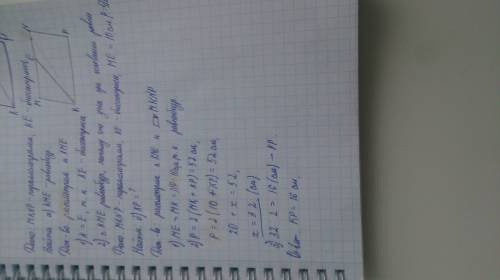 Дано: MKNP - параллелограмм, KE - биссектриса
Найти: а) KME - равнобедр.
Док-во: рассмотрим Δ KME
1) K = E, т.к. KE - биссектриса
2) Δ KME равнобедр., потому что углы при основании равны
Дано: MKNP - параллелограмм, KE - биссектриса, ME = 10 см, P = 52
Найти: б) KP - ?
Док-во: рассмотрим Δ KME и MKNP
1) ME = MK = 10 см, т.к. равнобедр.
2) P = 2 (MK + KP) = 52 см,
P = 2 (10 + KP) = 52 см,
20 + x = 52,
x = 32 (см)
3) 32 : 2 = 16 (см) - KP.
Ответ: KP = 16 см.